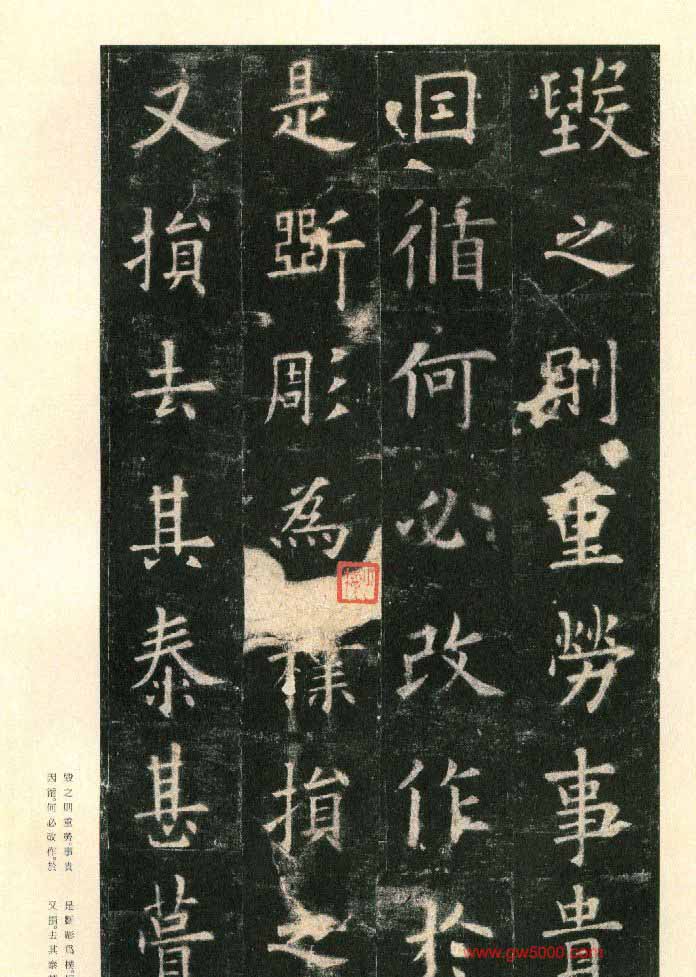 毀之則重勞事貴
因循何必改作於
是斲彫為樸損之
又損去其泰甚葺
毀之則重勞。事貴
因循。何必改作。於
是斲彫爲樸。
又損。去其泰
www.gw5000.com